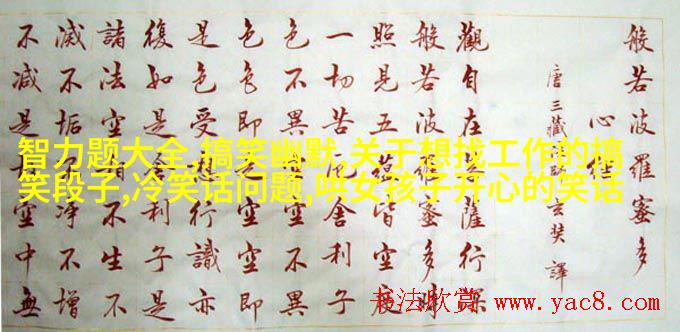 般若波羅蜜多
心經
唐三藏法師玄奘譯
觀自在菩薩行深
般若波羅蜜多時
照見五蘊皆空度
一切苦厄舍利子
色不異空空不異
色色即是空空即
是色受想行識亦
復如是舍利子是
諸法空相不生不
滅不垢不淨不增
不減是故空中無
智力题大全,搞笑幽默,关于想找工作的搞
笑段子,冷笑话问题,哄女孩子开心的笑话
书法欣赏 www.yac8.com